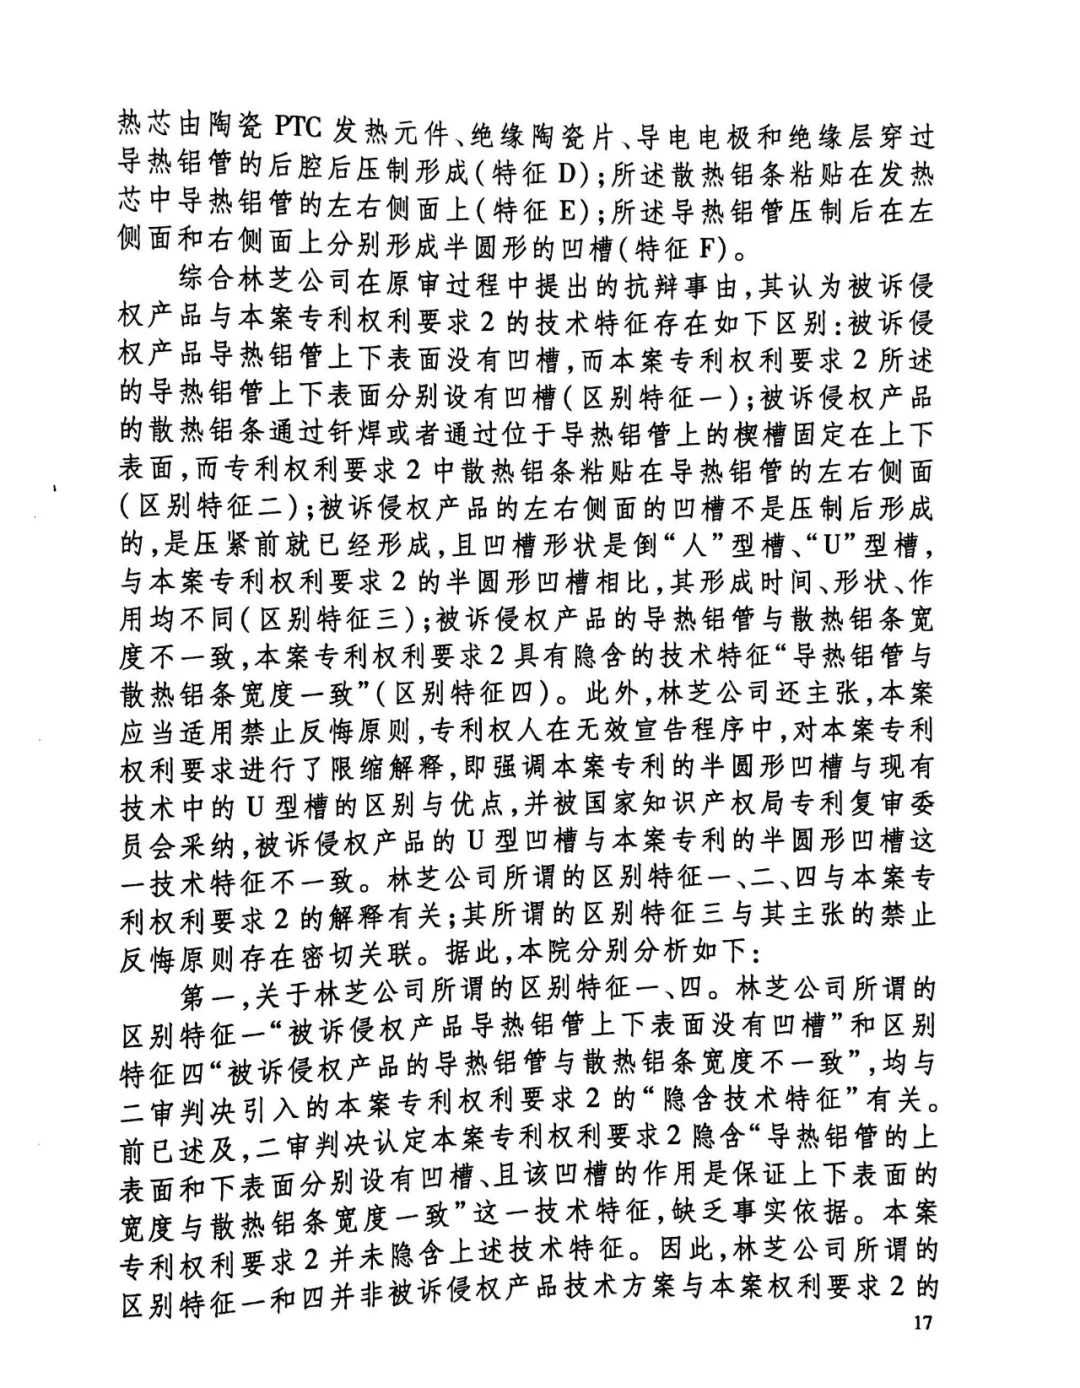 热芯由陶瓷 PTC 发热元件、绝缘陶瓷片、导电电极和绝缘层穿过
导热铝管的后腔后压制形成(特征 D);所述散热铝条粘贴在发热
芯中导热铝管的左右侧面上(特征 E);所述导热铝管压制后在左
侧面和右侧面上分别形成半圆形的凹槽(特征 F)。
综合林芝公司在原审过程中提出的抗辩事由,其认为被诉侵
权产品与本案专利权利要求 2 的技术特征存在如下区别:被诉侵
权产品导热铝管上下表面没有凹槽,而本案专利权利要求 2 所述
的导热铝管上下表面分别设有凹槽(区别特征一);被诉侵权产品
的散热铝条通过钎焊或者通过位于导热铝管上的楔槽固定在上下
表面,而专利权利要求 2 中散热铝条粘贴在导热铝管的左右侧面
(区别特征二);被诉侵权产品的左右侧面的凹槽不是压制后形成
的,是压紧前就已经形成,且凹槽形状是倒“人”型槽、“U”型槽,
与本案专利权利要求 2 的半圆形凹槽相比,其形成时间、形状、作
用均不同(区别特征三);被诉侵权产品的导热铝管与散热铝条宽
度不一致,本案专利权利要求 2 具有隐含的技术特征“导热铝管与
散热铝条宽度一致”(区别特征四)。此外,林芝公司还主张,本案
应当适用禁止反悔原则,专利权人在无效宣告程序中,对本案专利
权利要求进行了限缩解释,即强调本案专利的半圆形凹槽与现有
技术中的 U 型槽的区别与优点,并被国家知识产权局专利复审委
员会采纳,被诉侵权产品的 U 型凹槽与本案专利的半圆形凹槽这
一技术特征不一致。林芝公司所谓的区别特征一、二、四与本案专
利权利要求 2 的解释有关;其所谓的区别特征三与其主张的禁止
反悔原则存在密切关联。据此,本院分别分析如下:
第一,关于林芝公司所谓的区别特征一、四。林芝公司所谓的
区别特征一“被诉侵权产品导热铝管上下表面没有凹槽”和区别
特征四“被诉侵权产品的导热铝管与散热铝条宽度不一致”,均与
二审判决引入的本案专利权利要求 2 的“隐含技术特征”有关。
前已述及,二审判决认定本案专利权利要求 2 隐含“导热铝管的上
表面和下表面分别设有凹槽、且该凹槽的作用是保证上下表面的
宽度与散热铝条宽度一致”这一技术特征,缺乏事实依据。本案
专利权利要求 2 并未隐含上述技术特征。因此,林芝公司所谓的
区别特征一和四并非被诉侵权产品技术方案与本案权利要求 2 的
17